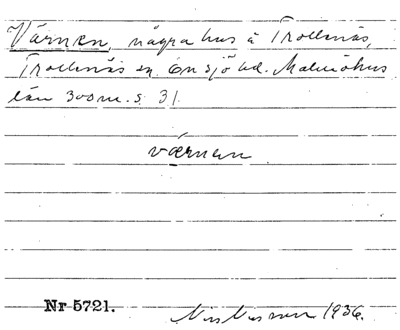 Värnen, några hus å Trollenäs,
Trollenäs sn. Onsjö hd. Malmöhus
län 300 m. s. 31.
værnen
Nr 5721.
1936.